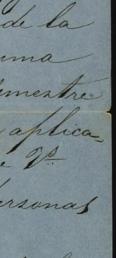 de la
uma
semestre
aplica-
e Vs
ersonas